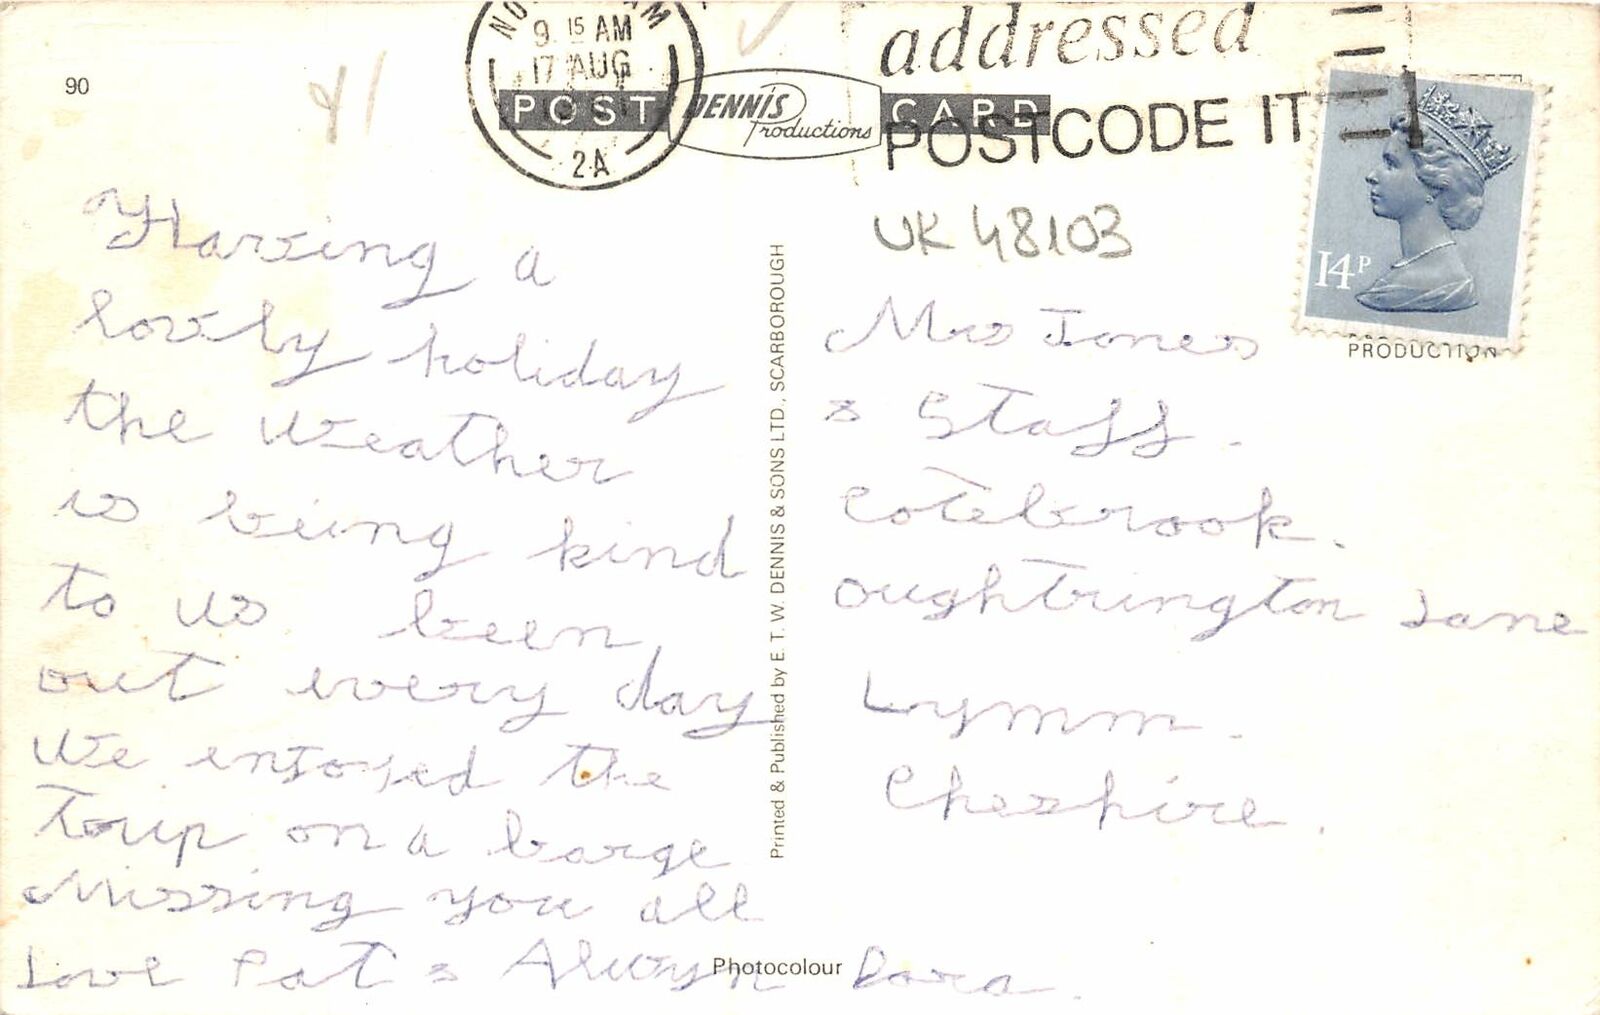 addressed
9. 15 AM
17 AUG
2A
90
POST
DENNIS
Productions
CARD
POSTCODE IT
UK 48103
14P
PRODUCTION
Having a
lovely holiday
the weather
is being kind
to us been
out every day
We enjoyed the
on a barge
Missing you all
Love Pat & Alwyn Dora.
Printed & Published by E. T. W. DENNIS & SONS LTD., SCARBOROUGH
Photocolour
Mrs Jones
& Staff.
Cotebrook.
Oughtrington Lane
Lymm.
Cheshire.